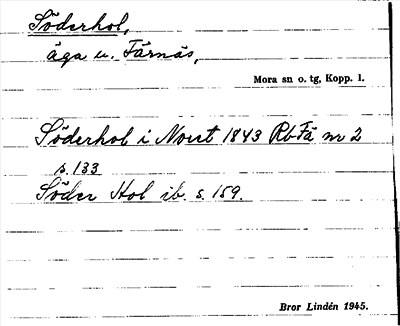 Söderhol,
äga u. Färnäs,
Mora sn o. tg, Kopp. l.
Söderhol i Noret 1843 Rb Fä nr 2
s. 133
Söder Hol ib. s. 159.
Bror Lindén 1945.